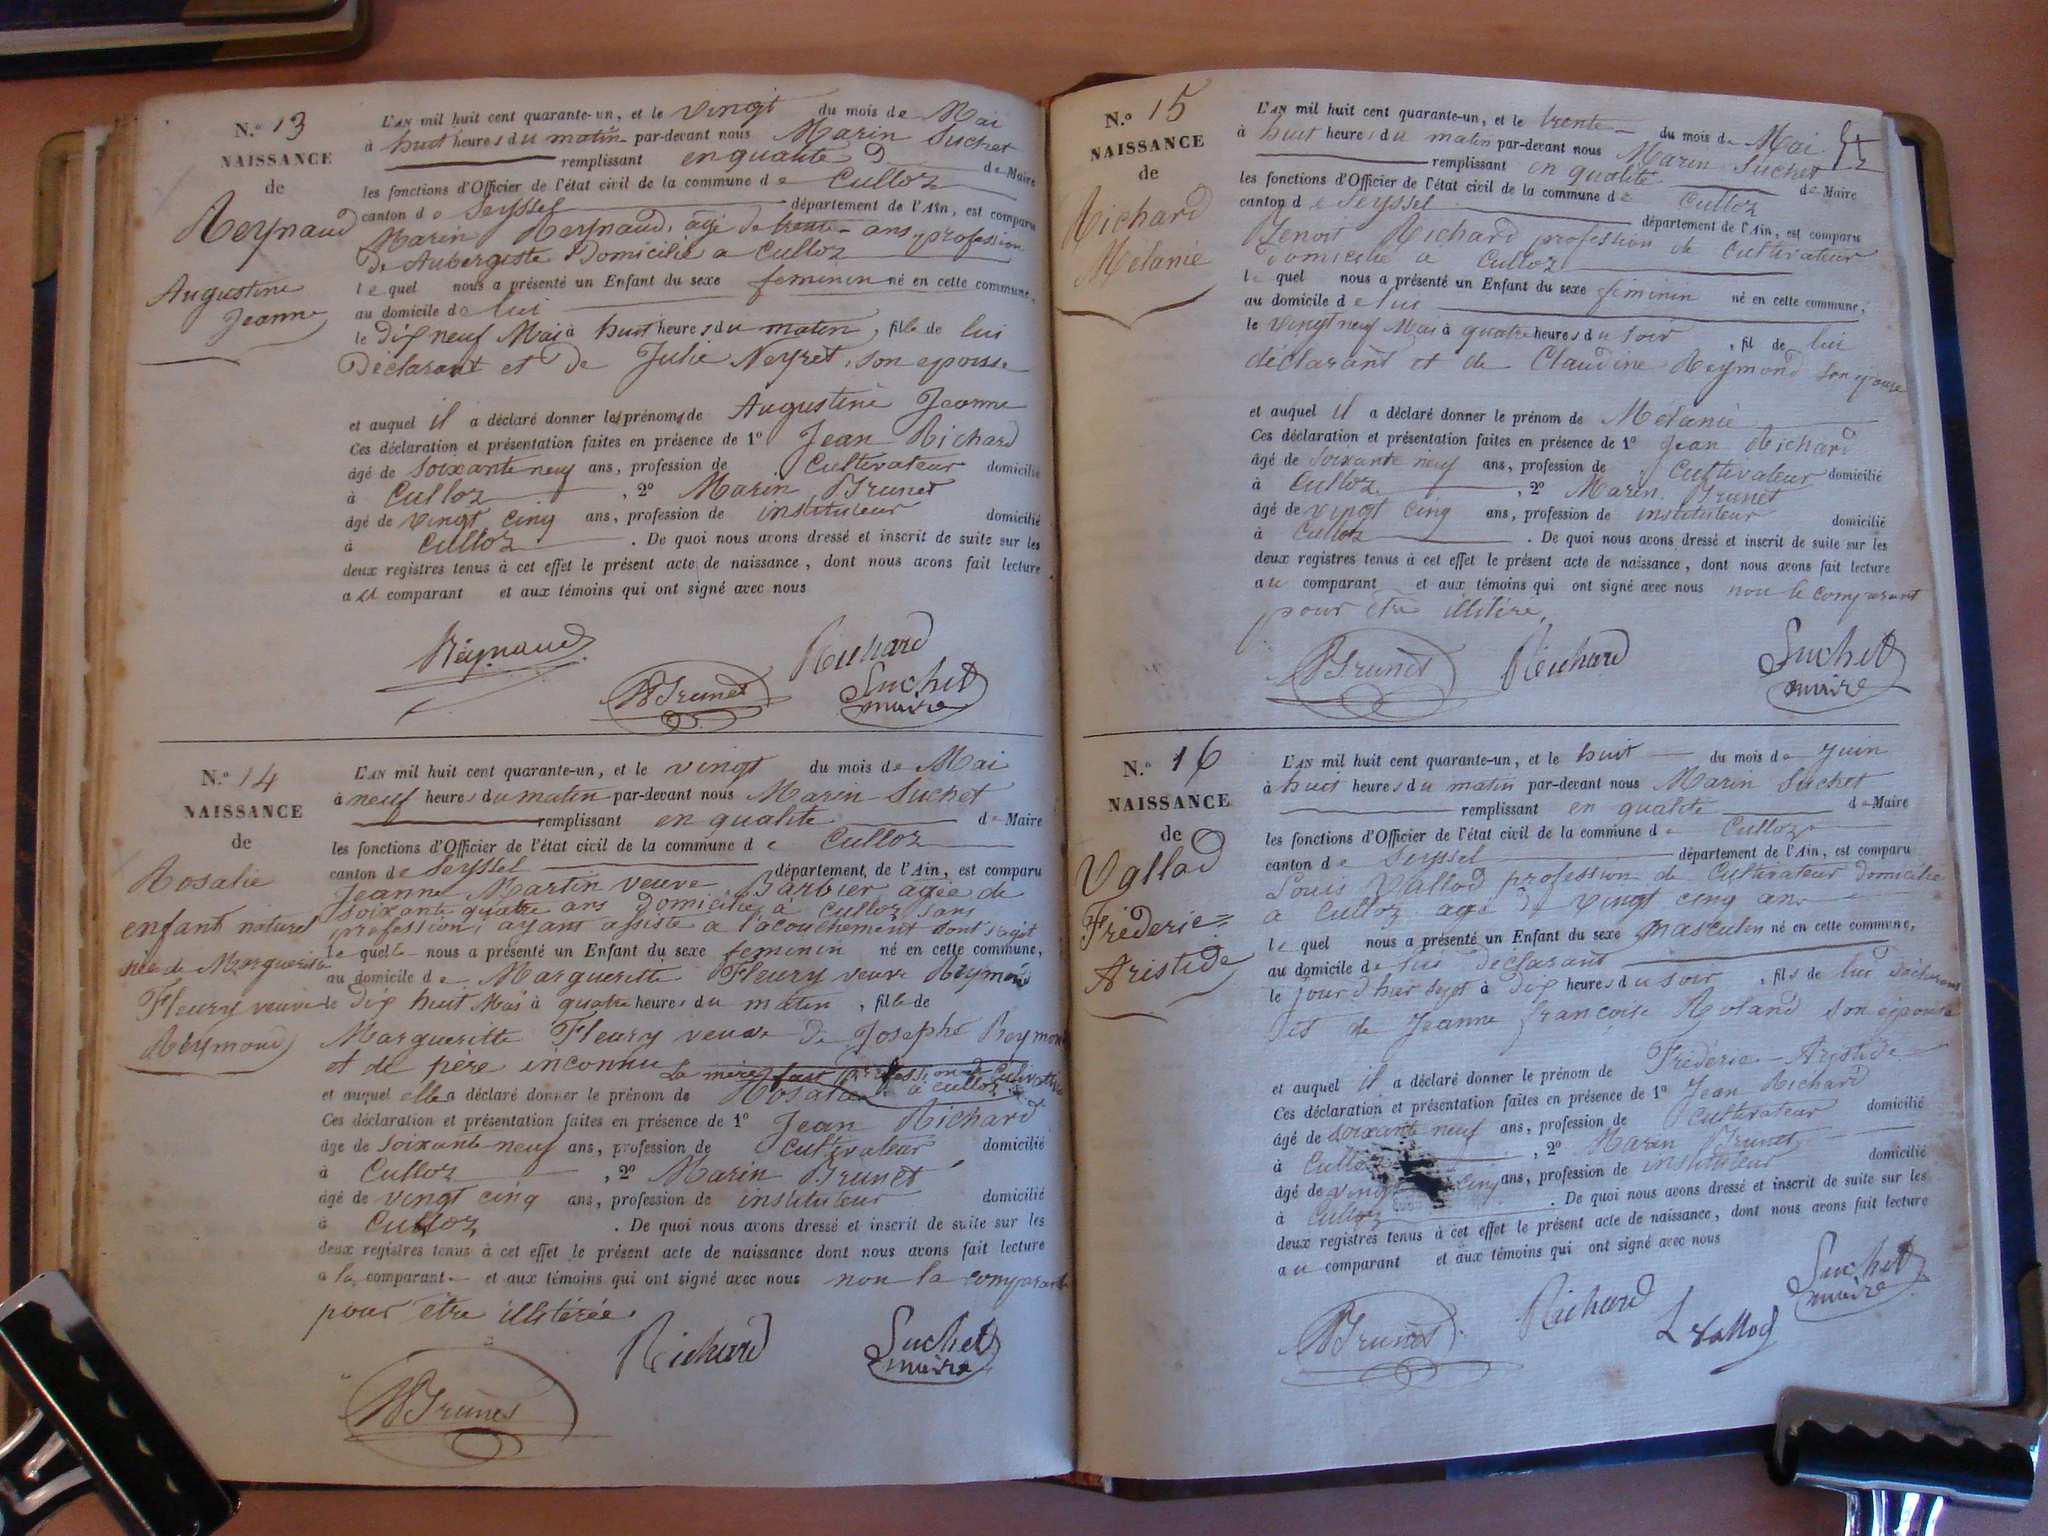 N.o 13
NAISSANCE
de
Reynaud
Augustine
Jeanne
L'AN mil huit cent quarante-un, et le vingt du mois de Mai
à huit heures du matin par-devant nous Marin Suchet
remplissant en qualité de Maire
les fonctions d'Officier de l'état civil de la commune de Culloz
canton de Seyssel département de l'Ain, est comparu
Marin Reynaud, âgé de trente ans, profession
de Aubergiste Domicilié a Culloz
lequel nous a présenté un Enfant du sexe feminin né en cette commune,
au domicile de lui
le dix neuf Mai à huit heures du matin, fille de lui
Déclarant et de Julie Neyret, son epouse
et auquel il a déclaré donner les prénoms de Augustine Jeanne
Ces déclaration et présentation faites en présence de 1o Jean Richard
âgé de soixante neuf ans, profession de Cultivateur domicilié
à Culloz, 2o Marin Brunet
âgé de vingt cinq ans, profession de instituteur domicilié
à Culloz. De quoi nous avons dressé et inscrit de suite sur les
deux registres tenus à cet effet le présent acte de naissance, dont nous avons fait lecture
au comparant et aux témoins qui ont signé avec nous
Reynaud
Brunet
Richard
Suchet
maire
N.o 14
NAISSANCE
de
Rosalie
enfant naturel
née de Marguerite
Fleury veuve
Reymond
L'AN mil huit cent quarante-un, et le vingt du mois de Mai
à neuf heures du matin par-devant nous Marin Suchet
remplissant en qualité de Maire
les fonctions d'Officier de l'état civil de la commune de Culloz
canton de Seyssel département de l'Ain, est comparu
Jeanne Martin veuve Barbier agée de
soixante quatre ans domicilie à Culloz sans
profession, ayant assisté a l'acouchement dont s'agit
lequelle nous a présenté un Enfant du sexe feminin né en cette commune,
au domicile de Marguerite Fleury veuve Reymond
le dix huit Mai à quatre heures du matin, fille de
Marguerite Fleury veuve de Joseph Reymond
et de père inconnu La mère fait profession de Cultivatrice
à Culloz
et auquel elle a déclaré donner le prénom de Rosalie
Ces déclaration et présentation faites en présence de 1o Jean Richard
âgé de soixante-neuf ans, profession de Cultivateur domicilié
à Culloz, 2o Marin Brunet
âgé de vingt cinq ans, profession de instituteur domicilié
à Culloz. De quoi nous avons dressé et inscrit de suite sur les
deux registres tenus à cet effet le présent acte de naissance dont nous avons fait lecture
a la comparante et aux témoins qui ont signé avec nous non la comparante
pour être illitérée.
Richard
Suchet
maire
Brunet
N.o 15
NAISSANCE
de
Richard
Mélanie
L'AN mil huit cent quarante-un, et le trente du mois de Mai
à huit heures du matin par-devant nous Marin Suchet
remplissant en qualité de Maire
les fonctions d'Officier de l'état civil de la commune de Culloz
canton de Seyssel département de l'Ain, est comparu
Benoit Richard profession de Cultivateur
Domicilié a Culloz
lequel nous a présenté un Enfant du sexe feminin né en cette commune,
au domicile de lui
le vingt neuf Mai à quatre heures du soir, fil de lui
déclarant et de Claudine Reymond son epouse
et auquel il a déclaré donner le prénom de Mélanie
Ces déclaration et présentation faites en présence de 1o Jean Richard
âgé de soixante neuf ans, profession de Cultivateur domicilié
à Culloz, 2o Marin Brunet
âgé de vingt cinq ans, profession de instituteur domicilié
à Culloz. De quoi nous avons dressé et inscrit de suite sur les
deux registres tenus à cet effet le présent acte de naissance, dont nous avons fait lecture
au comparant et aux témoins qui ont signé avec nous non le comparant
pour être illitéré.
Brunet
Richard
Suchet
maire
N.o 16
NAISSANCE
de
Vallod
Fréderic=
Aristide
L'AN mil huit cent quarante-un, et le huit du mois de Juin
à huit heures du matin par-devant nous Marin Suchet
remplissant en qualité de Maire
les fonctions d'Officier de l'état civil de la commune de Culloz
canton de Seyssel département de l'Ain, est comparu
Louis Vallod profession de Cultivateur Domicilié
a Culloz agé de vingt cinq ans
lequel nous a présenté un Enfant du sexe masculin né en cette commune,
au domicile de lui déclarant
le jour d'hier sept à dix heures du soir, fils de lui déclarant
et de Jeanne françoise Roland son épouse
et auquel il a déclaré donner le prénom de Fréderic-Aristide
Ces déclaration et présentation faites en présence de 1o Jean Richard
âgé de soixante neuf ans, profession de Cultivateur domicilié
à Culloz, 2o Marin Brunet
âgé de vingt cinq ans, profession de instituteur domicilié
à Culloz. De quoi nous avons dressé et inscrit de suite sur les
deux registres tenus à cet effet le présent acte de naissance, dont nous avons fait lecture
au comparant et aux témoins qui ont signé avec nous
Brunet
Richard
L Vallod
Suchet
maire